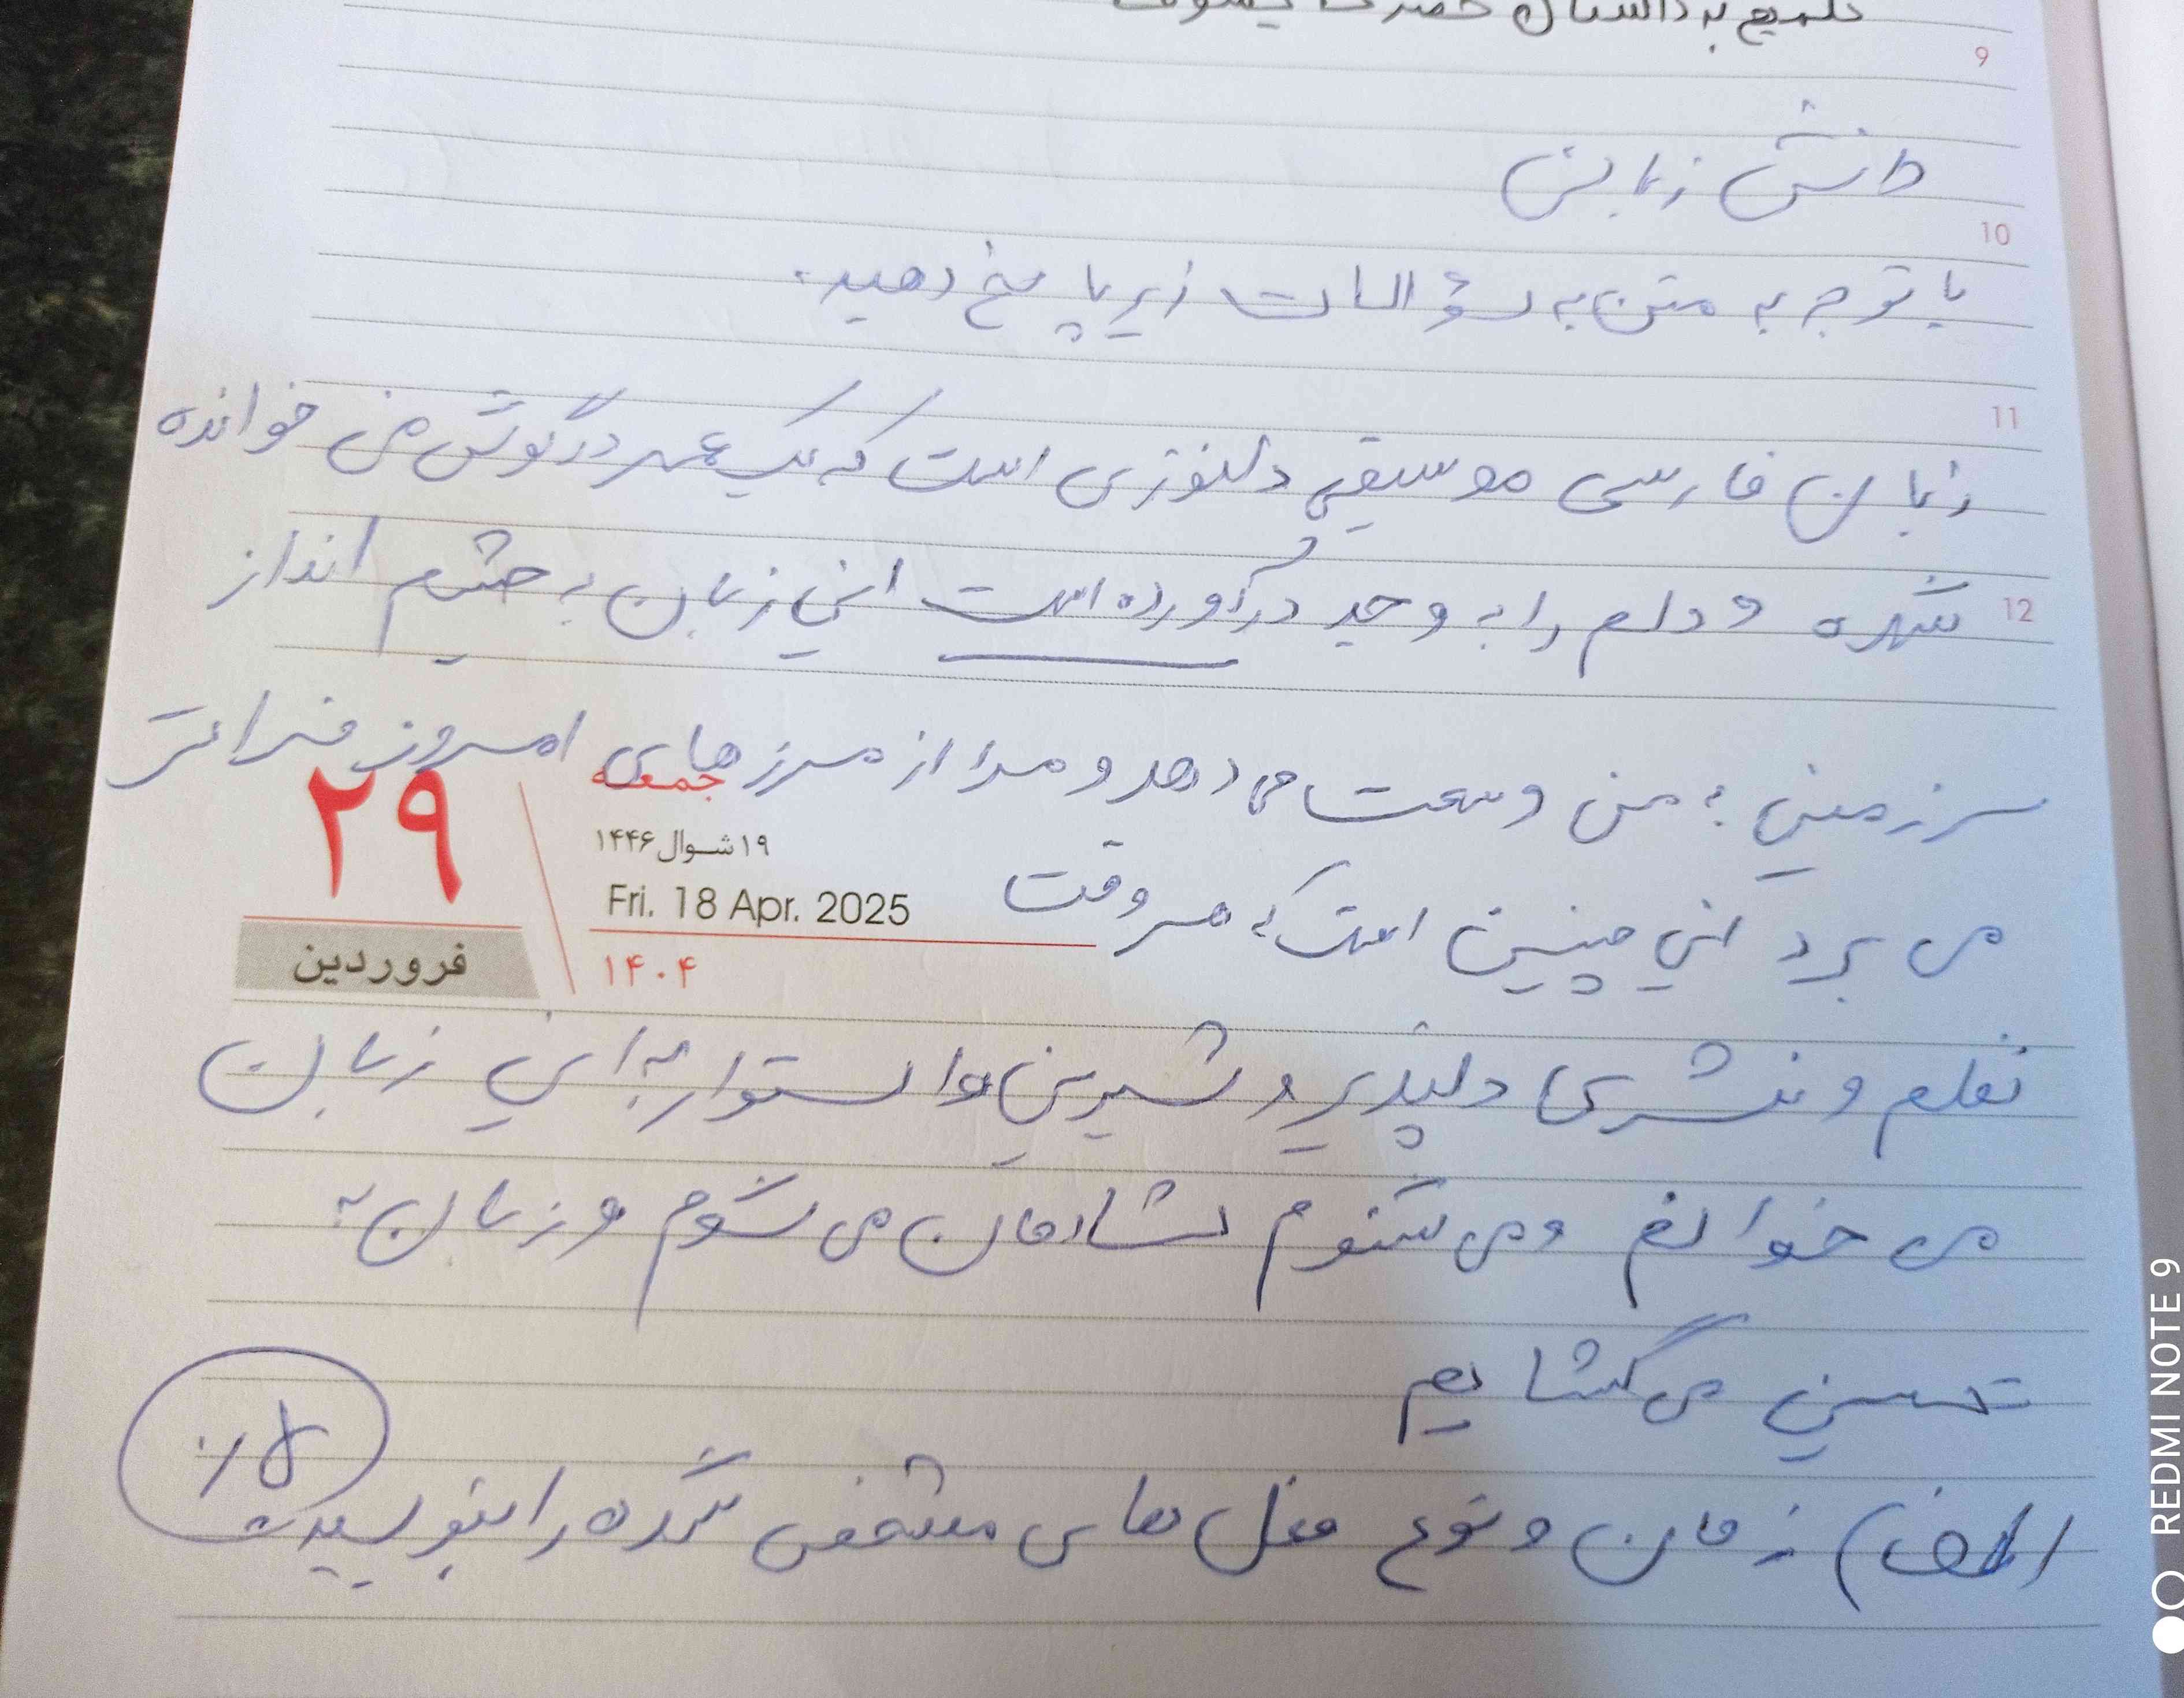 تلمیح به داستان حضرت یوسف
9
دانش زبانی
10
با توجه به متن به سؤالات زیر پاسخ دهید.
11
زبان فارسی موسیقی دلنوازی است که یک عمر در گوش من خوانده
12
شده و دلم را به وجد درآورده است این زبان به چشم انداز
سرزمینی به من وسعت می دهد و مرا از مرزهای امروز فراتر
۲۹
جمعه
۱۹ شوال ۱۴۴۶
Fri. 18 Apr. 2025
۱۴۰۴
فروردین
می برد این چنین است که هر وقت
نظم و نثری دلپذیر و شیرین و استوار به این زبان
می خوانم و می شنوم شادمان می شوم و زبان به
تحسین می گشایم
الف) زمان و نوع فعل های مشخص شده را بنویسید
REDMI NOTE 9